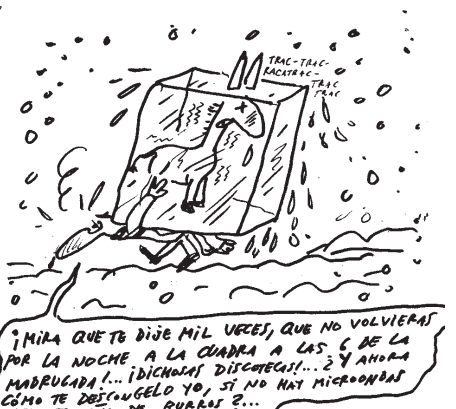 TRAC-TRAC-
RACATRAC-
TRAC
TRAC
¡MIRA QUE TE DIJE MIL VECES, QUE NO VOLVIERAS
POR LA NOCHE A LA CUADRA A LAS 6 DE LA
MADRUGADA!... ¡DICHOSAS DISCOTECAS!...¿Y AHORA
CÓMO TE DESCONGELO YO, SI NO HAY MICROONDAS
DE BURROS?...